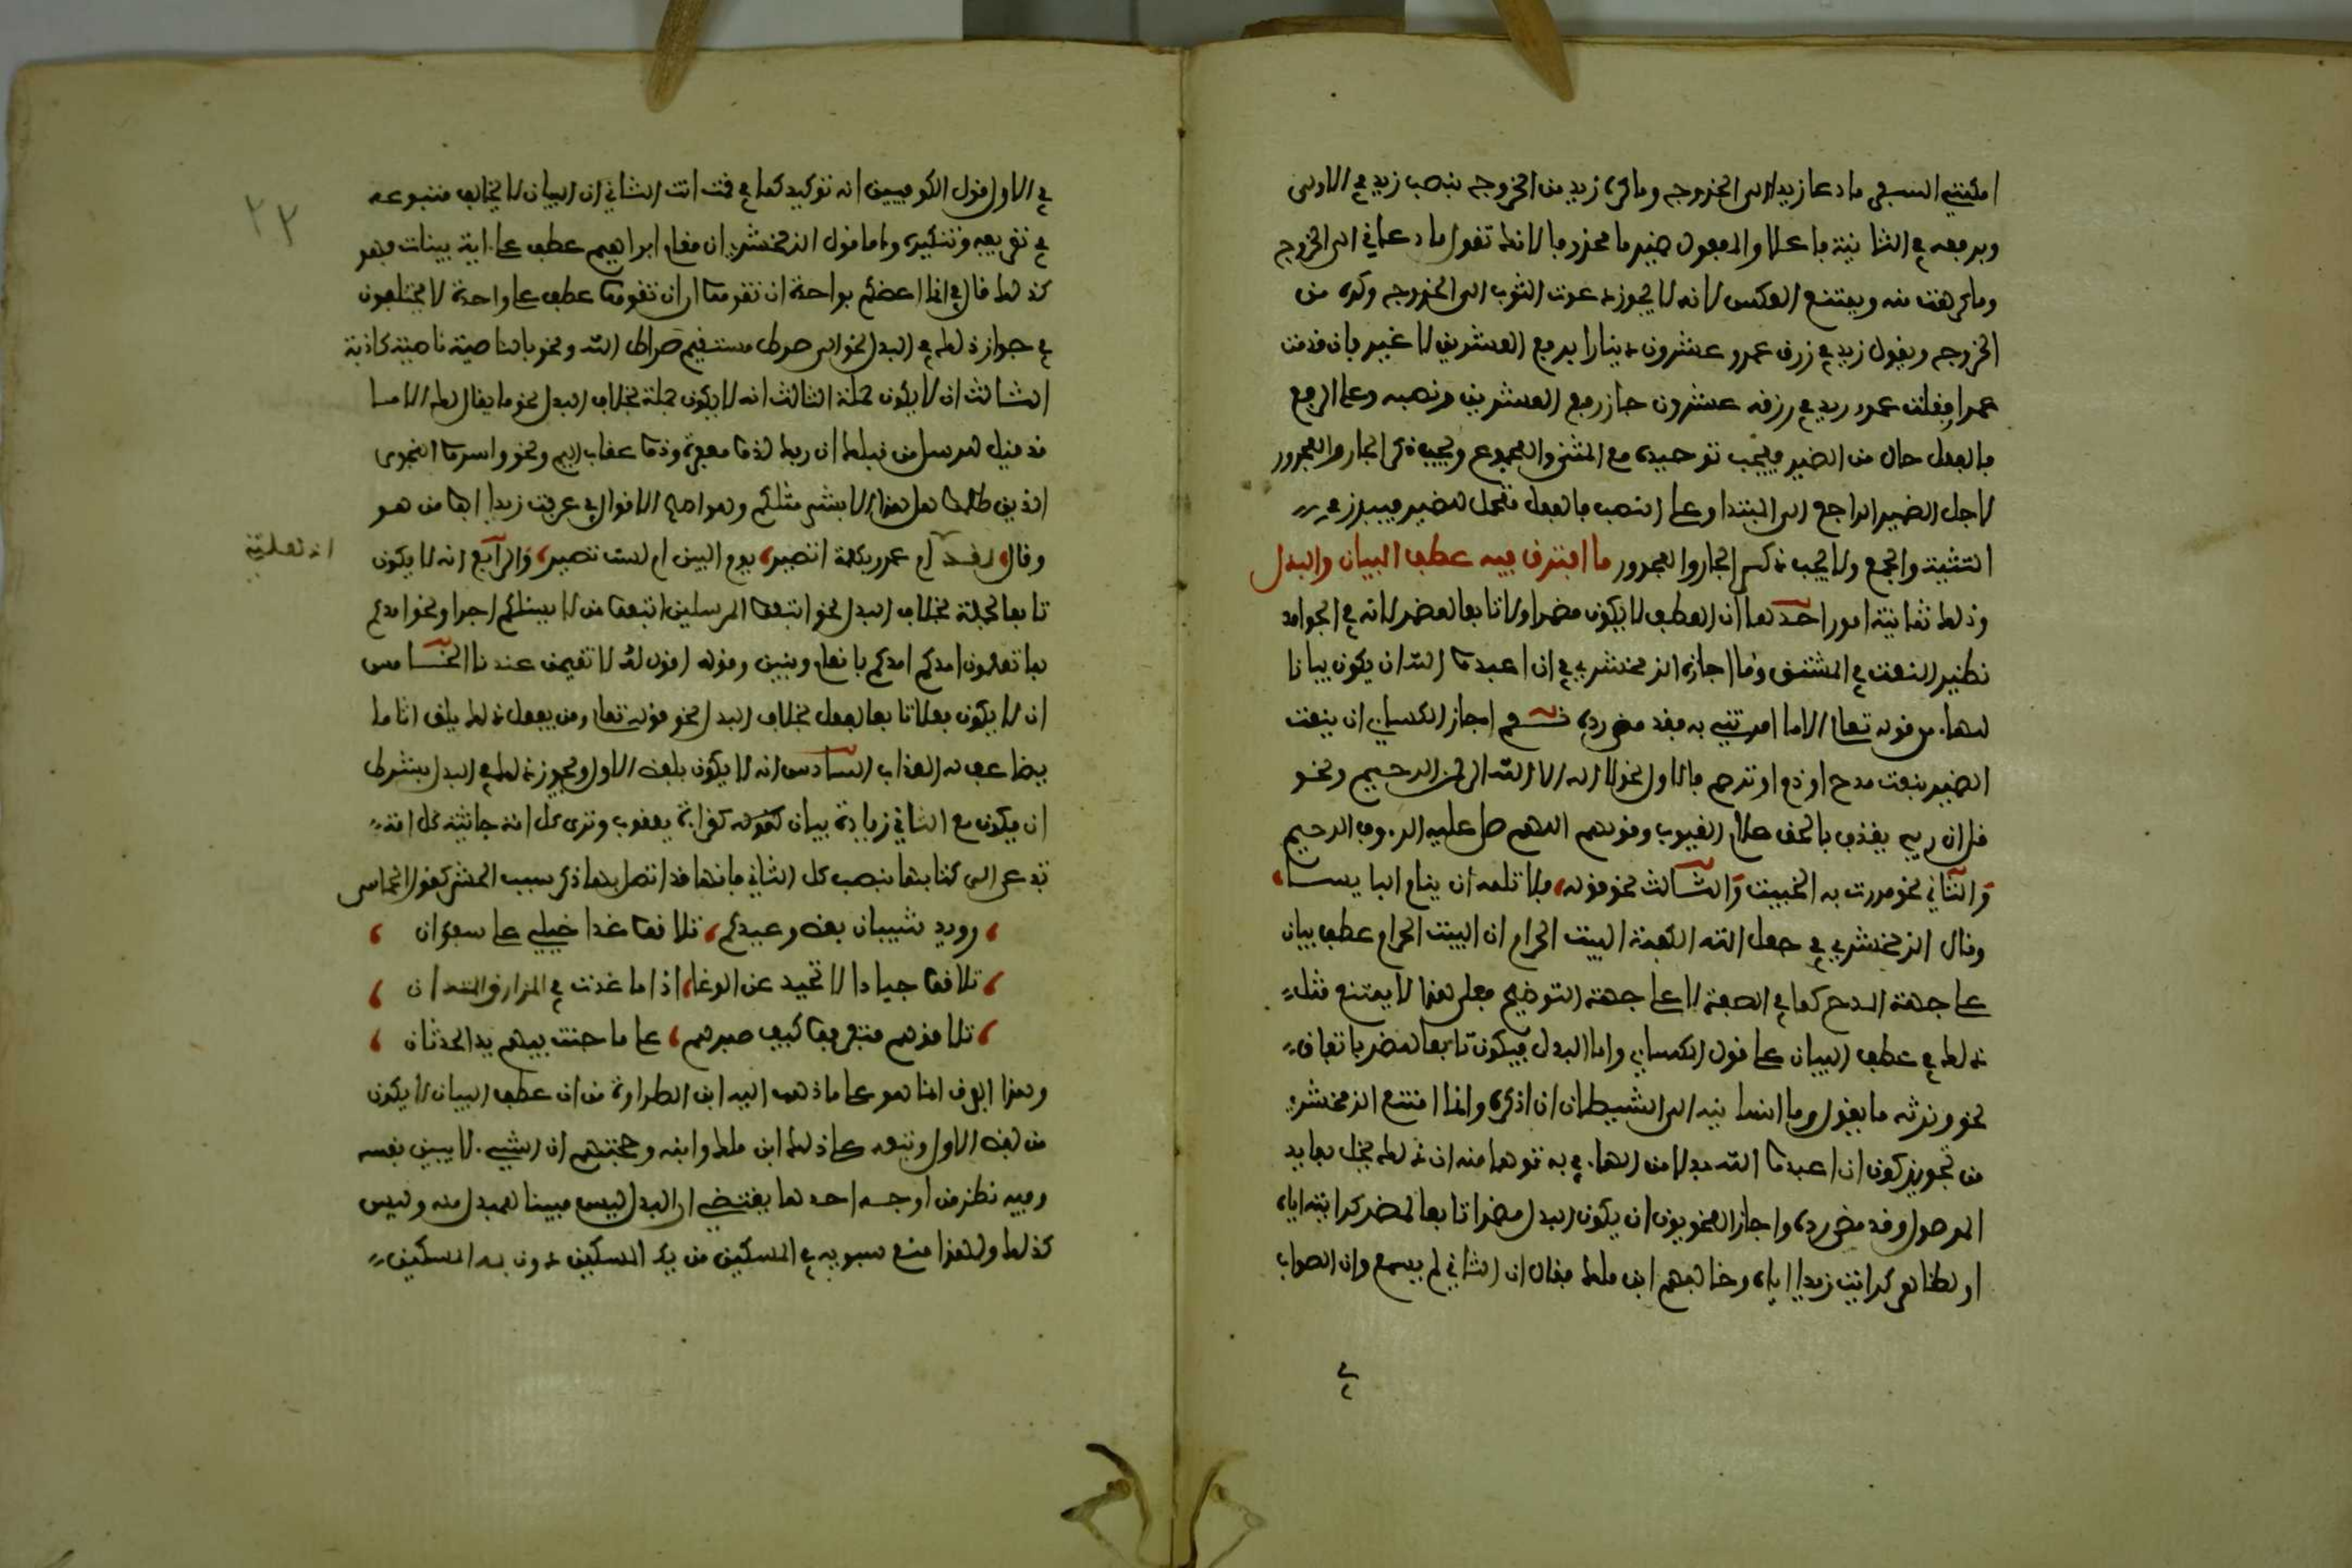 امكنني السفر ما دعا زيدا الى الخروج وما كره زيد من الخروج بنصب زيد في الاولى
وبرفعه في الثانية فاعلا والمفعول ضمير ما محذوفا لانك تقول ما دعاني الى الخروج
وما كرهت منه ويمتنع العكس لانه لا يجوز دعوت الثوب الى الخروج وكره من
الخروج ويقول زيد في رزق عمرو عشرون دينارا برفع العشرين لا غير فان قدمت
عمرا فقلت عمرو زيد في رزقه عشرون جاز رفع العشرين ونصبه وعلى الرفع
فالفعل خال من الضمير فيجب توحيده مع المثنى والمجموع ويجب ذكر الجار والمجرور
لاجل الضمير الراجع الى المبتدا وعلى النصب فالفعل متحمل للضمير فيبرز في
التثنية والجمع ولا يجب ذكر الجار والمجرور ما افترق فيه عطف البيان والبدل
وذلك ثمانية امور احدها ان العطف لا يكون مضمرا ولا تابعا لمضمر لانه في الجوامد
نظير النعت في المشتق وما اجازه الزمخشري في ان اعبدوا الله ان يكون بيانا
للهاء من قوله تعالى الا ما امرتني به فقد مضى رده نعم اجاز الكسائي ان ينعت
الضمير بنعت مدح او ذم او ترحم فالاول نحو لا اله الا الله الرحمن الرحيم ونحو
قل ان ربي يقذف بالحق علام الغيوب وقولهم اللهم صل عليه الروف الرحيم
والثاني نحو مررت به الخبيث والثالث نحو قوله فلا تلمه ان ينام البايسا
وقال الزمخشري في جعل الله الكعبة البيت الحرام ان البيت الحرام عطف بيان
على جهة المدح كما في الصفة لا على جهة التوضيح فعلى هذا لا يمتنع مثل
ذلك في عطف البيان على قول الكسائي واما البدل فيكون تابعا لمضمر باتفاق
نحو ونرثه ما يقول وما انسانيه الى الشيطان ان اذكره وانما امتنع الزمخشري
من تجويز كون ان اعبدوا الله بدلا من الهاء في به توهما منه ان ذلك يخل بعايد
الموصول وقد مضى رده واجاز النحويون ان يكون البدل مضمرا تابعا لمضمر كرايته اياه
او لظاهر كرايت زيدا اياه وخالفهم ابن ملك فقال ان الثاني لم يسمع وان الصواب
في الاول قول الكوفيين انه توكيد كما في قمت انت الثاني ان البيان لا يخالف متبوعه
في تعريفه وتنكيره واما قول الزمخشري ان مقام ابراهيم عطف على اية بينات فهو
كذلك قال في انما اعضكم بواحدة ان تقوموا ان ان تقوموا عطف على واحدة لا يختلفون
في جواز ذلك في البدل نحو الى صرط مستقيم صراط الله ونحو بالناصية ناصية كاذبة
الثالث ان لا يكون جملة الثالث انه لا يكون جملة بخلاف البدل نحو ما يقال لك الا ما
قد قيل للرسل من قبلك ان ربك لذو مغفرة وذو عقاب اليم ونحو واسروا النجوى
الذين ظلموا هل هذا الا بشر مثلكم وهو اصح الاقوال في عرفت زيدا ابو من هو
وقال لقد ام عمرو بكلمة اتصبر يوم البين ام لست تصبر والرابع انه لا يكون
تابعا لجملة بخلاف البدل نحو اتبعوا المرسلين اتبعوا من لا يسئلكم اجرا ونحو امدكم
بما تعلمون امدكم امدكم بانعام وبنين وقوله اقول له لا تقيمن عندنا الخامس
ان لا يكون فعلا تابعا لفعل بخلاف البدل نحو قوله تعالى ومن يفعل ذلك يلق اثاما
يضاعف له العذاب السادس انه لا يكون بلفظ الاول ويجوز ذلك في البدل بشرط
ان يكون مع الثاني زيادة بيان كقوله كقراة يعقوب وترى كل امة جاثية كل امة
تدعى الى كتابها بنصب كل الثاني فانها قد اتصل بها ذكر سبب الجثو كقول الحماسي
رويد شيبان بعض وعيدكم تلاقوا غدا خيلي على سفوان
تلاقوا جيادا لا تحيد عن الوغا اذا ما غدت في المازق المتدان
تلاقوهم فتعرفوا كيف صبرهم على ما جنت بيهم يد الحدثان
وهذا الفرق انما هو على ما ذهب اليه ابن الطراوة من ان عطف البيان لا يكون
من لفظ الاول وتبعه على ذلك ابن ملك وابنه وحجتهم ان الشيء لا يبين نفسه
وفيه نظر من اوجه احدها يقتضي ان البدل ليس مبينا للمبدل منه وليس
كذلك ولهذا منع سبويه في المسكين من بك المسكين دون به المسكين
٢٢